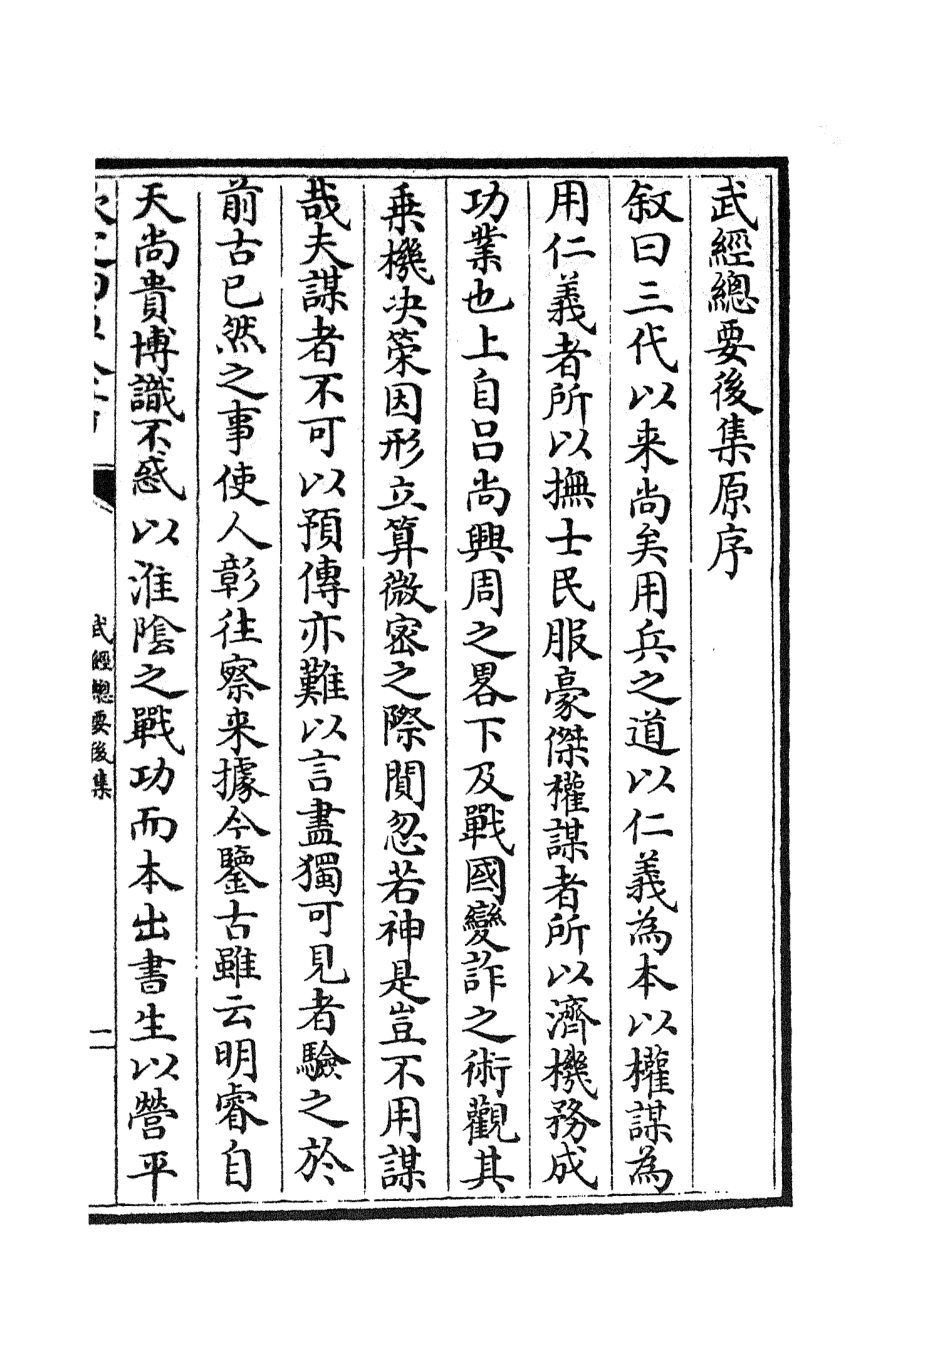 武經總要後集原序
敘曰三代以来尚矣用兵之道以仁義為本以權謀為
用仁義者所以撫士民服豪傑權謀者所以濟機務成
功業也上自吕尚興周之畧下及戰國變詐之術觀其
乗機决策因形立算微密之際間忽若神是豈不用謀
哉夫謀者不可以預傳亦難以言盡獨可見者驗之於
前古已然之事使人彰往察来據今鑒古雖云明睿自
天尚貴博識不惑以淮陰之戰功而本出書生以營平
武經總要後集
二